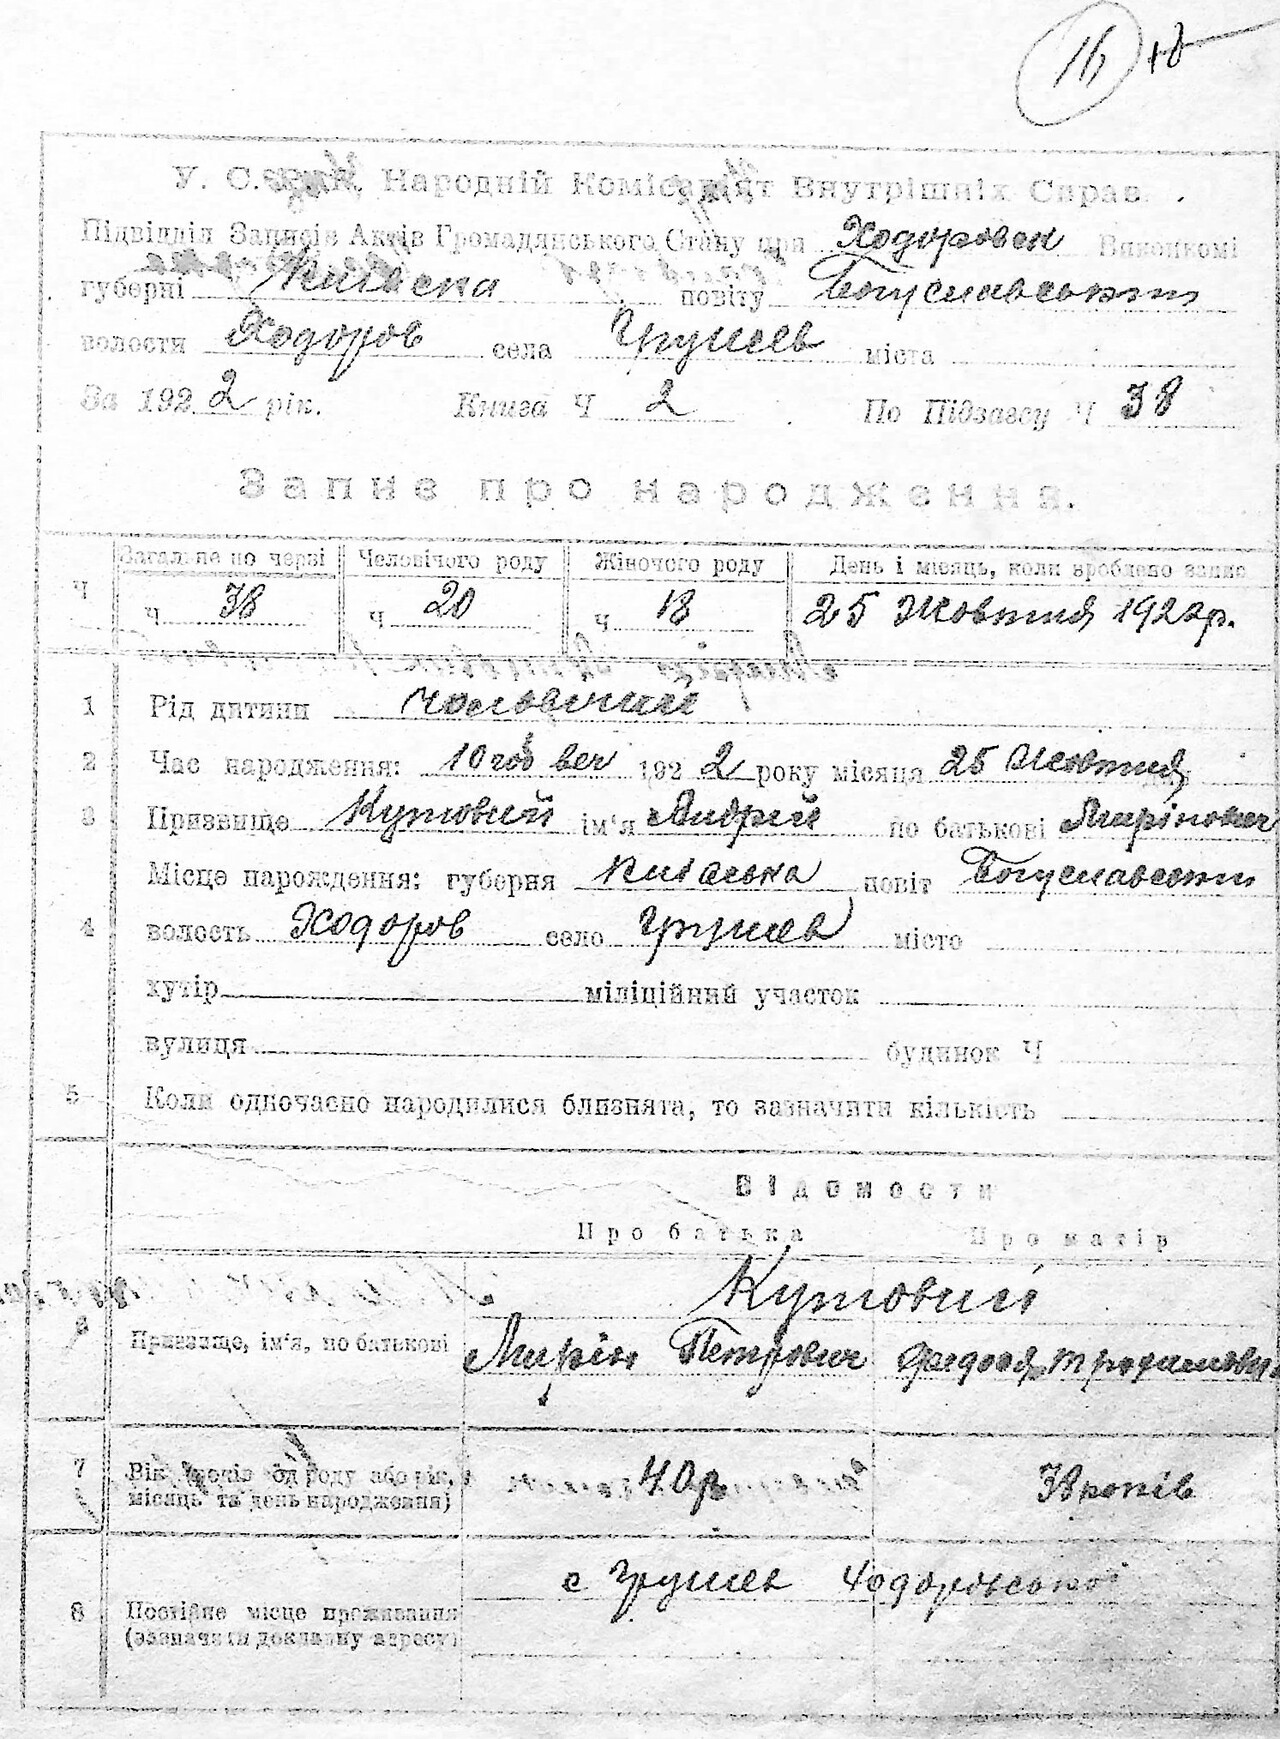 16 18
У. С. Народній Комісаріят Внутрішніх Справ.
Підвідділ Записів Актів Громадянського Стану при Ходоровск Виконкомі
губерні Київска повіту Богуславський
волости Ходоров села Грушев міста
За 1922 рік. Книга Ч 2 По Підзагсу Ч 38
Запис про народження.
Ч Загальне по черві Человічого роду Жіночого роду День і місяць, коли зроблено запис
Ч 38 Ч 20 Ч 18 25 Жовтня 1922р.
1 Рід дитини чоловічий
2 Час народження: 10 год веч 1922 року місяця 25 Жовтня
3 Призвище Кутовий ім'я Андрій по батькові Мирінович
Місце народження: губерня Київська повіт Богуславський
4 волость Ходоров село Грушев місто
хутір міліційний участок
вулиця будинок Ч
5 Коли одночасно народилися близнята, то зазначити кількість
Відомости
Про батька Про матір
Кутовий
6 Призвище, ім'я, по батькові Мирін Петрович Федося Трохимовна
7 Вік (років од роду або рік, 40р 38 років
місяць та день народження)
с Грушев Ходоровської
8 Постійне місце проживання
(зазначити докладну адресу)